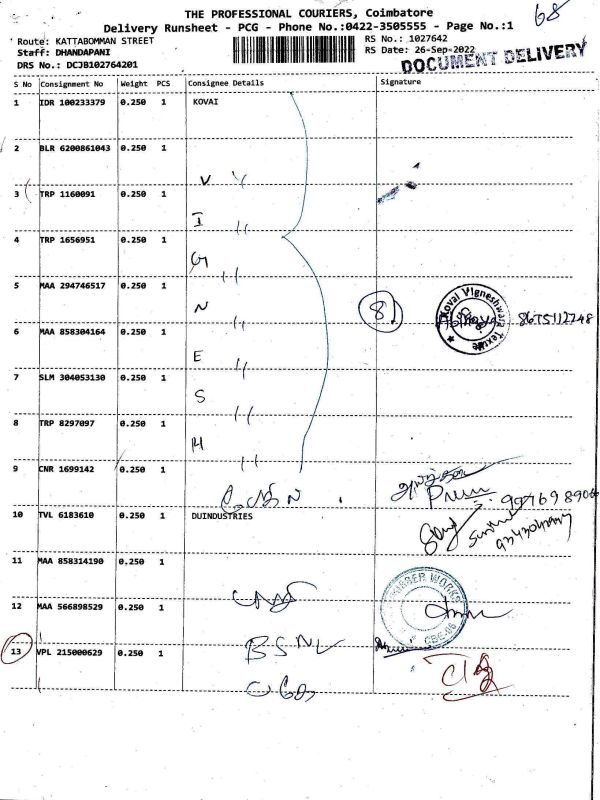 THE PROFESSIONAL COURIERS, Coimbatore
68
Delivery Runsheet - PCG - Phone No.:0422-3505555 - Page No.:1
Route: KATTABOMMAN STREET
RS No.: 1027642
Staff: DHANDAPANI
RS Date: 26-Sep-2022
DOCUMENT DELIVERY
DRS No.: DCJB102764201
S No Consignment No Weight PCS Consignee Details Signature
1 IDR 100233379 0.250 1 KOVAI
2 BLR 6200861043 0.250 1
V
3 TRP 1160091 0.250 1
I
4 TRP 1656951 0.250 1
G
5 MAA 294746517 0.250 1
N
8
Kovai Vigneshwara Textile
6 MAA 858304164 0.250 1
E
7 SLM 304053130 0.250 1
S
8 TRP 8297097 0.250 1
H
9 CNR 1699142 0.250 1
10 TVL 6183610 0.250 1 DUINDUSTRIES
11 MAA 858314190 0.250 1
RUBBER WORKS
CBE-06
12 MAA 566898529 0.250 1
BSNL
13 VPL 215000629 0.250 1